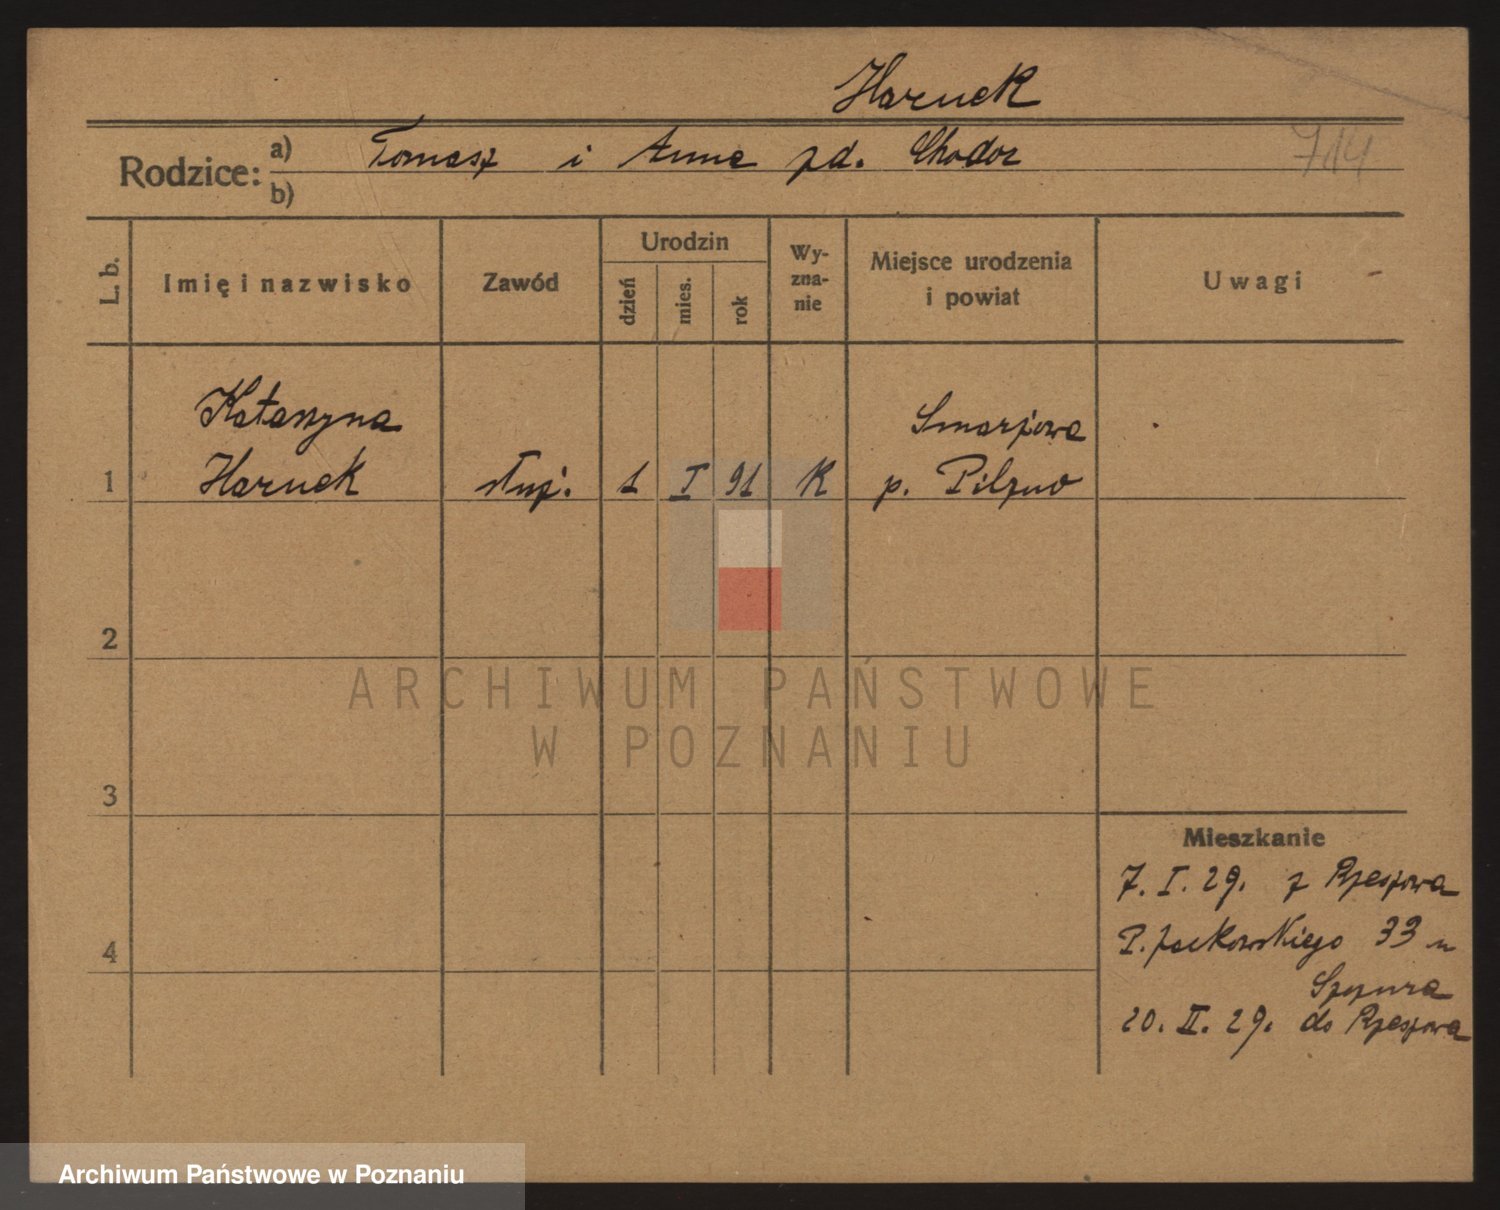 Haruck
Rodzice: a) Tomasz i Anna zd. Chodor 714
b)
L. b. Imię i nazwisko Zawód Urodzin dzień mies. rok Wy-zna-nie Miejsce urodzenia i powiat Uwagi
Katarzyna Smarżowa
1 Haruck służ. 1 I 91 K p. Pilzno
2
ARCHIWUM PAŃSTWOWE
W POZNANIU
3
Mieszkanie
7. I. 29. z Rzeszowa
P. Jackowskiego 33 u
4
Szpura
20. II. 29. do Rzeszowa
Archiwum Państwowe w Poznaniu